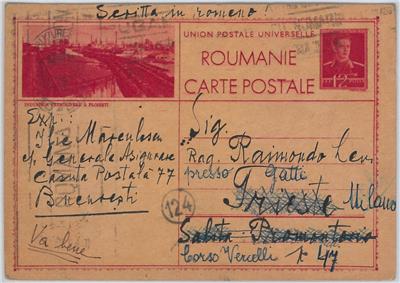 Scritta in romeno
UNION POSTALE UNIVERSELLE
ROUMANIE
CARTE POSTALE
12
INDUSTRIE PÉTROLIFÈRE À PLOEȘTI
Exp:
Ilie Mărculescu
Generala Asigurare
Casuta Postală 77
București
Va bene
124
Sig.
Rag. Raimondo Levi
presso Gatti
Trieste Milano
Salita Promontorio
Corso Vercelli 47